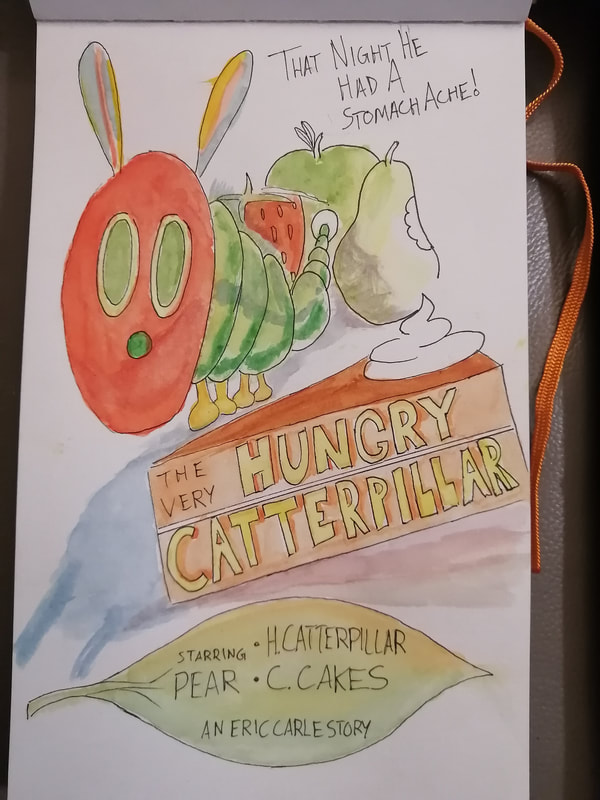 THAT NIGHT HE
HAD A
STOMACH ACHE!
THE
VERY
HUNGRY
CATTERPILLAR
STARRING • H. CATTERPILLAR
PEAR • C. CAKES
AN ERIC CARLE STORY